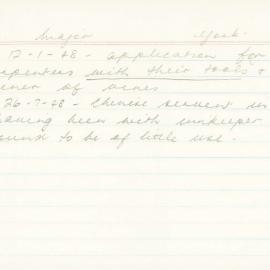 Major York
12-1-48 - application for
carpenters with their tools &
of
26-7-48 - Chinese servant
having been with innkeeper
found to be of little use.